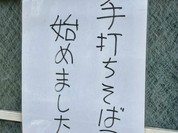 手打ちそば
始めました